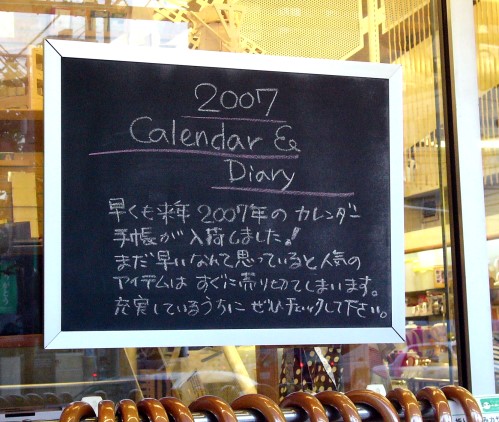 2007
Calendar &
Diary
早くも来年2007年のカレンダー
手帳が入荷しました!
まだ早いなんて思っていると人気の
アイテムはすぐに売り切れてしまいます。
充実しているうちにぜひチェックして下さい。